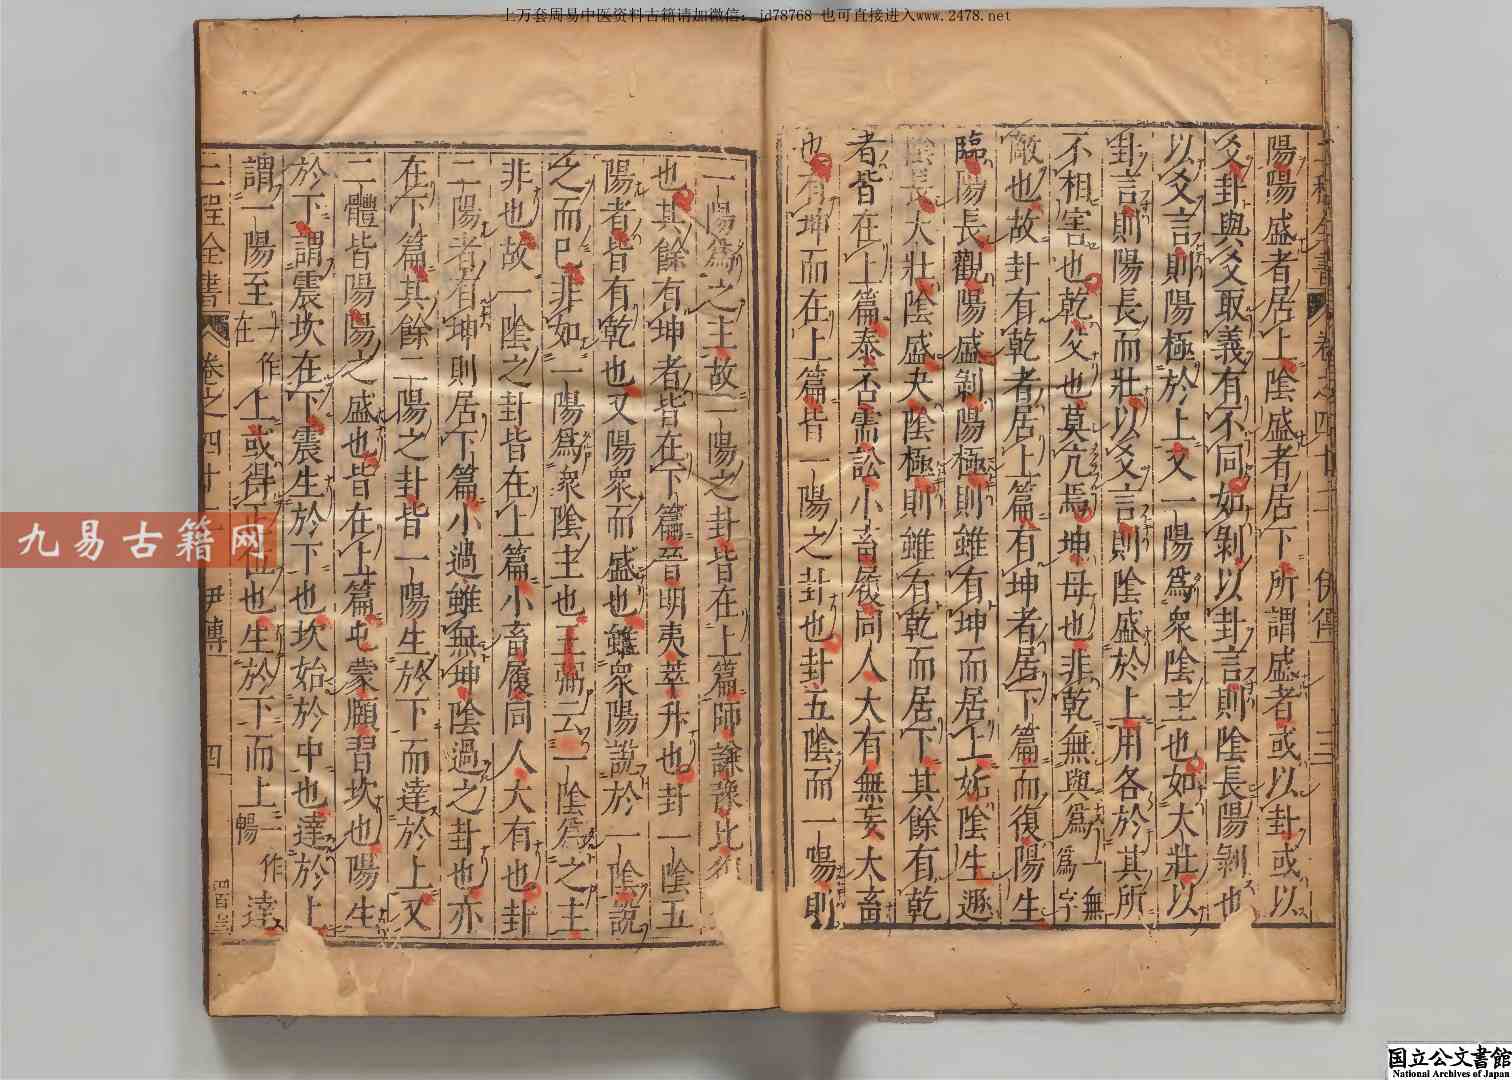 上万套周易中医资料古籍请加微信： jd78768 也可直接进入www.2478.net
陽陽盛者居上陰盛者居下所謂盛者或以卦或以
爻卦與爻取義有不同如剝以卦言則陰長陽剝也
以爻言則陽極於上又一陽爲衆陰主也如大壯以
卦言則陽長而壯以爻言則陰盛於上用各於其所
不相害也乾父也莫亢焉坤母也非乾無與爲一無爲字
敵也故卦有乾者居上篇有坤者居下篇而復陽生
臨陽長觀陽盛剝陽極則雖有坤而居上姤陰生遯
陰長大壯陰盛夬陰極則雖有乾而居下其餘有乾
者皆在上篇泰否需訟小畜履同人大有無妄大畜
也有坤而在上篇皆一陽之卦也卦五陰而一陽則
一陽爲之主故一陽之卦皆在上篇師謙豫比復
也其餘有坤者皆在下篇晉明夷萃升也卦一陰五
陽者皆有乾也又陽衆而盛也雖衆陽說於一陰說
之而巳非如一陽爲衆陰主也王弼云一陰爲之主
非也故一陰之卦皆在上篇小畜履同人大有也卦
二陽者有坤則居下篇小過雖無坤陰過之卦也亦
在下篇其餘二陽之卦皆一陽生於下而達於上又
二體皆陽陽之盛也皆在上篇屯蒙頤習坎也陽生
於下謂震坎在下震生於下也坎始於中也達於上
謂一陽至一作在上或得正位也生於下而上一作暢達
二程全書
卷之四十二
伊傳
四
九易古籍网
国立公文書館
National Archives of Japan